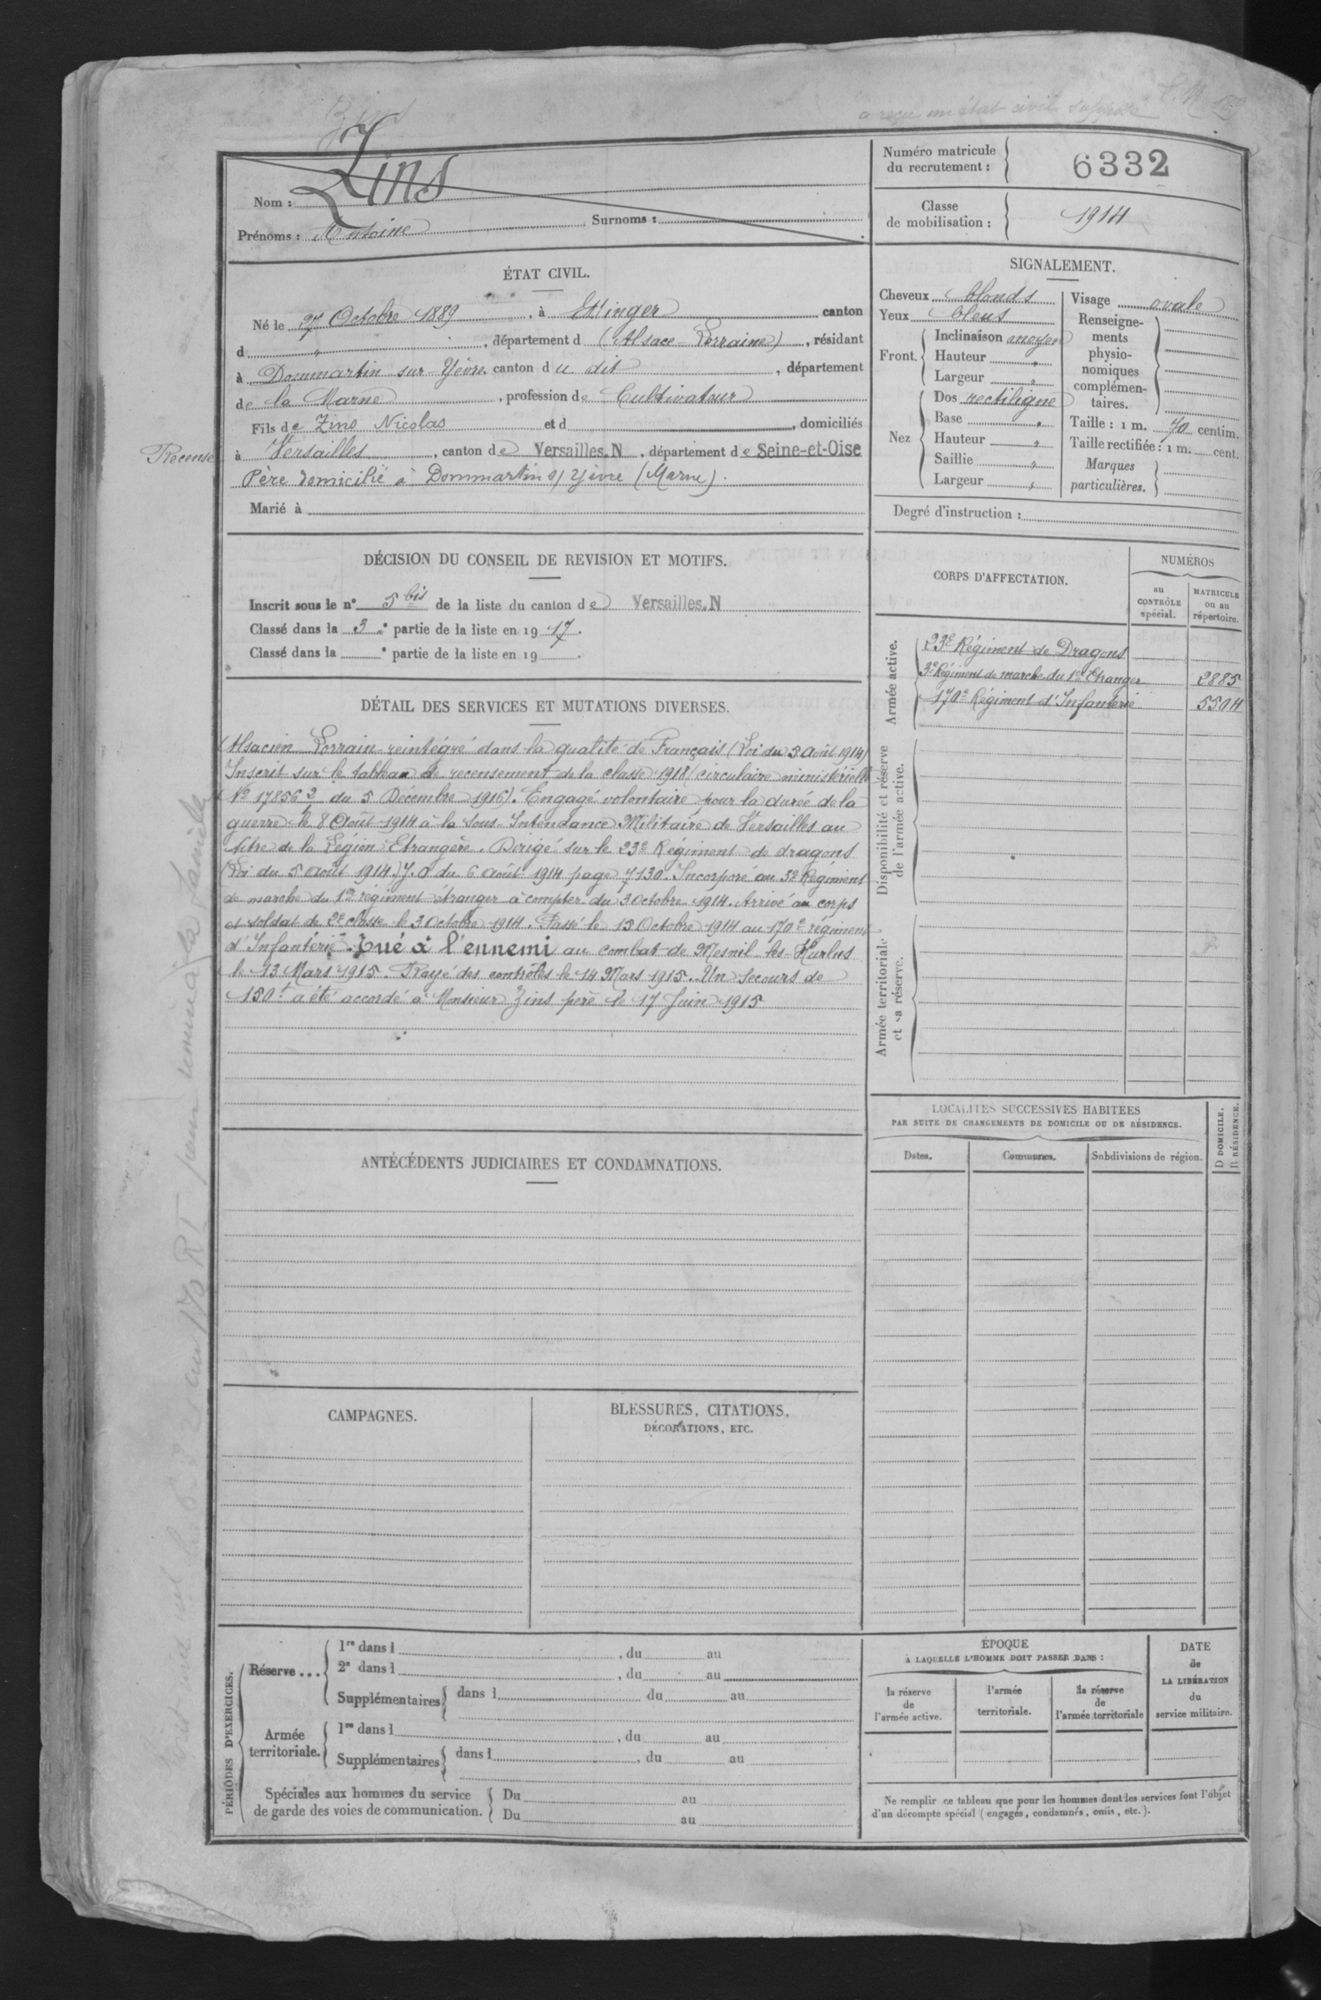 a reçu un état civil supposé
Zins
Numéro matricule du recrutement : 6332
Nom : Zins
Surnoms :
Prénoms : Antoine
Classe de mobilisation : 1914
ÉTAT CIVIL.
Né le 27 Octobre 1889, à Ettinger canton
d " , département d (Alsace-Lorraine), résidant
à Dommartin sur Yèvre, canton du dit, département
de la Marne, profession de Cultivateur
Fils de Zins Nicolas et d , domiciliés
Recensé à Versailles, canton de Versailles.N, département de Seine-et-Oise
Père domicilié à Dommartin s/ Yèvre (Marne).
Marié à
SIGNALEMENT.
Cheveux blonds
Yeux bleus
Front. Inclinaison moyen
Hauteur "
Largeur "
Nez Dos rectiligne
Base "
Hauteur "
Saillie "
Largeur "
Visage ovale
Renseigne-
ments
physio-
nomiques
complémen-
taires.
Taille : 1 m. 70 centim.
Taille rectifiée : 1 m. cent.
Marques
particulières.
Degré d'instruction :
DÉCISION DU CONSEIL DE REVISION ET MOTIFS.
Inscrit sous le n° 5 bis de la liste du canton de Versailles.N
Classé dans la 3 e partie de la liste en 1917.
Classé dans la e partie de la liste en 19 .
CORPS D'AFFECTATION.
NUMÉROS
au CONTRÔLE spécial.
MATRICULE ou au répertoire.
Armée active.
23e Régiment de Dragons
3e Régiment de marche du 1er Etranger 2885
170e Régiment d'Infanterie 5504
Disponibilité et réserve de l'armée active.
Armée territoriale et sa réserve.
DÉTAIL DES SERVICES ET MUTATIONS DIVERSES.
Alsacien Lorrain réintégré dans la qualité de Français (Loi du 5 août 1914)
Inscrit sur le tableau de recensement de la classe 1918 (circulaire ministérielle
No 17856 3 du 5 Décembre 1916). Engagé volontaire pour la durée de la
guerre le 8 Août 1914 à la Sous Intendance Militaire de Versailles au
titre de la Légion Etrangère. Dirigé sur le 23e Régiment de dragons
(Loi du 5 août 1914) J.O du 6 Août 1914 page 7130. Incorporé au 3e Régiment
de marche du 1er régiment étranger à compter du 3 octobre 1914. Arrivé au corps
et soldat de 2e classe le 3 Octobre 1914. Passé le 15 Octobre 1914 au 170e régiment
d'Infanterie. Tué à l'ennemi au combat de Mesnil-les-Hurlus
le 13 Mars 1915. Rayé des contrôles le 14 Mars 1915. Un secours de
150f a été accordé à Monsieur Zins père le 17 Juin 1915
LOCALITÉS SUCCESSIVES HABITÉES
PAR SUITE DE CHANGEMENTS DE DOMICILE OU DE RÉSIDENCE.
Dates.
Communes.
Subdivisions de région.
D DOMICILE.
R RÉSIDENCE.
ANTÉCÉDENTS JUDICIAIRES ET CONDAMNATIONS.
CAMPAGNES.
BLESSURES, CITATIONS,
DÉCORATIONS, ETC.
PÉRIODES D'EXERCICES.
Réserve...
1re dans l , du au
2e dans l , du au
Supplémentaires dans l du au
Armée territoriale.
1re dans l , du au
Supplémentaires dans l , du au
Spéciales aux hommes du service
de garde des voies de communication.
Du au
Du au
ÉPOQUE
À LAQUELLE L'HOMME DOIT PASSER DANS :
la réserve de l'armée active.
l'armée territoriale.
la réserve de l'armée territoriale
DATE
de
LA LIBÉRATION
du
service militaire.
Ne remplir ce tableau que pour les hommes dont les services font l'objet
d'un décompte spécial (engagés, condamnés, omis, etc.).